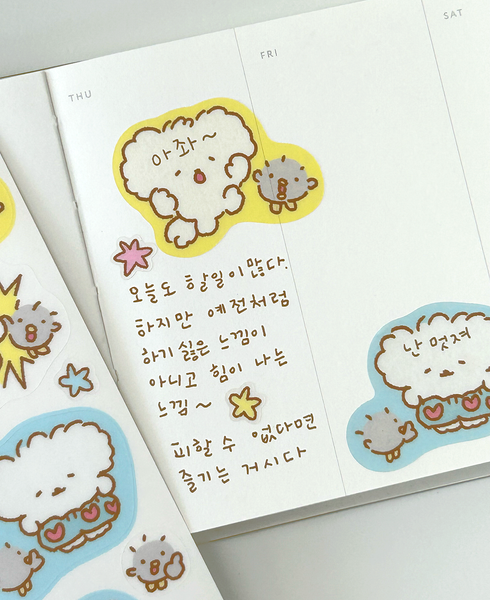 THU
FRI
SAT
아좌~
오늘도 할일이 많다.
하지만 예전처럼
하기 싫은 느낌이
아니고 힘이 나는
느낌~
피할 수 없다면
즐기는 거시다
난 멋져